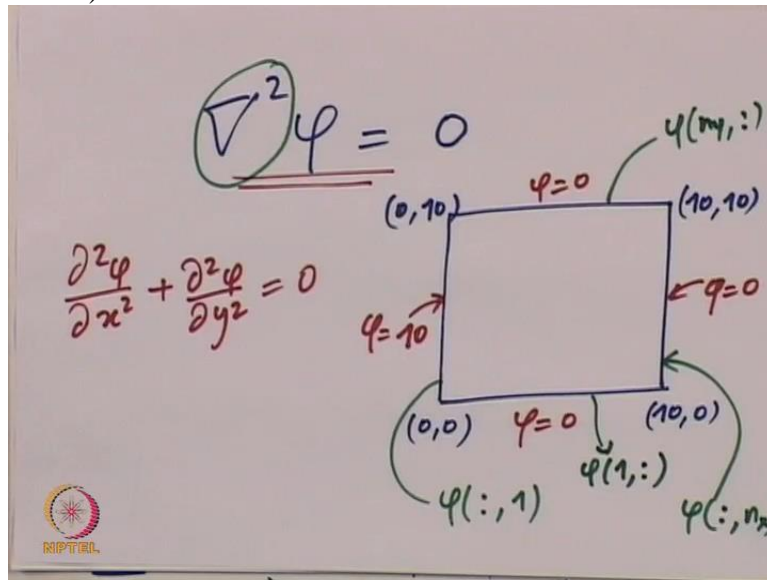 ∇²φ = 0
φ(ny, :)
φ=0
(0,10)
(10,10)
∂²φ/∂x² + ∂²φ/∂y² = 0
φ=10
φ=0
(0,0)
φ=0
(10,0)
φ(1,:)
φ(:,1)
φ(:,nx
NPTEL